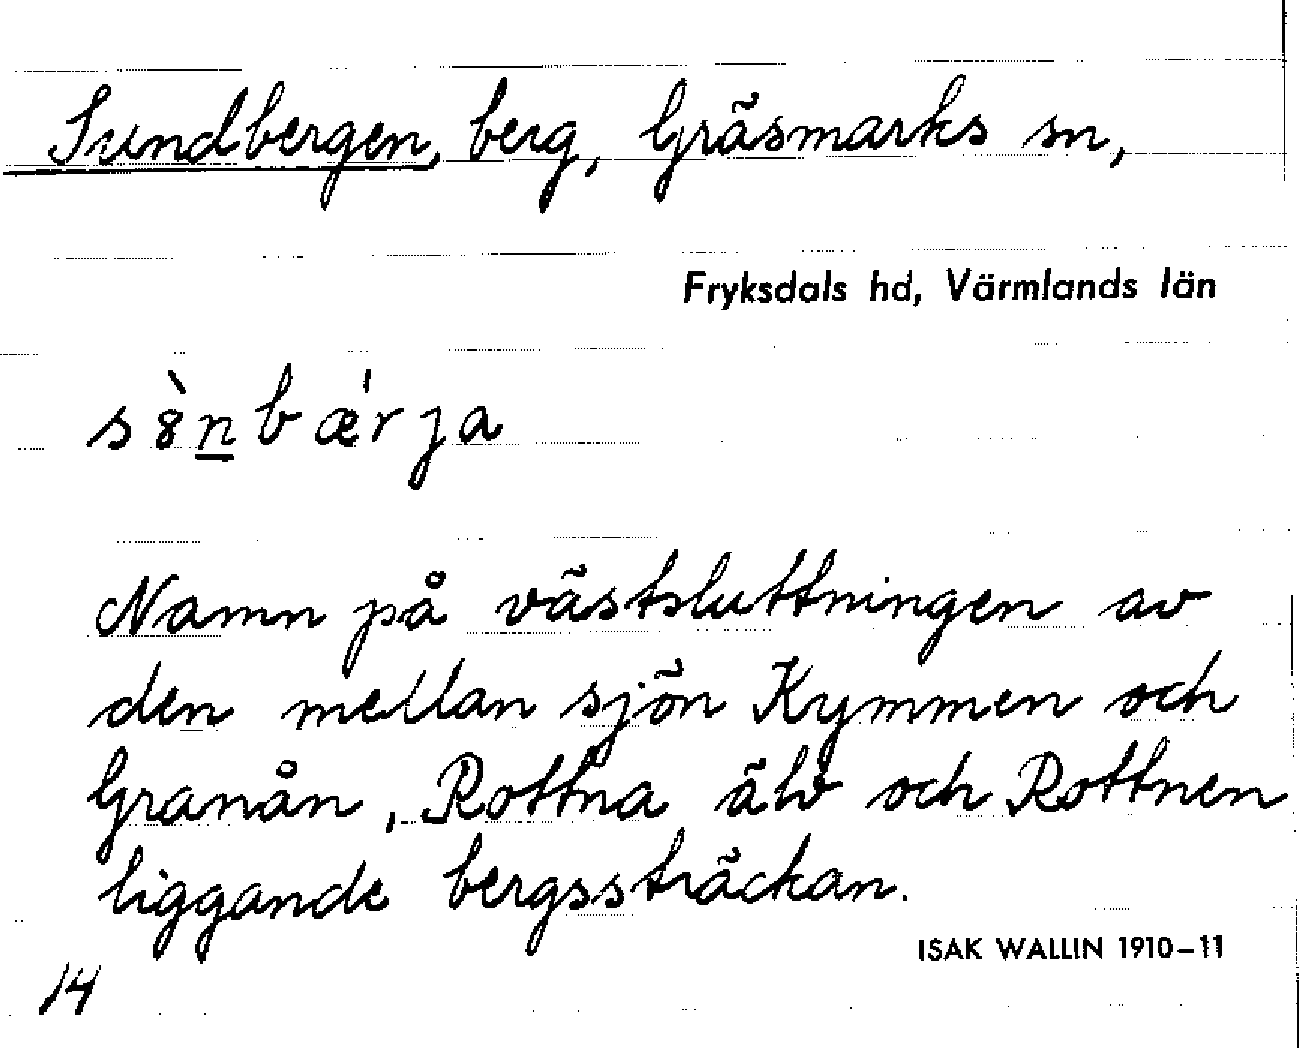 Sundbergen, berg, Gräsmarks sn,
Fryksdals hd, Värmlands län
s8̀n̲bǽrja
Namn på västsluttningen av
den mellan sjön Kymmen och
Granån, Rottna älv och Rottnen
liggande bergssträckan.
ISAK WALLIN 1910–11
14